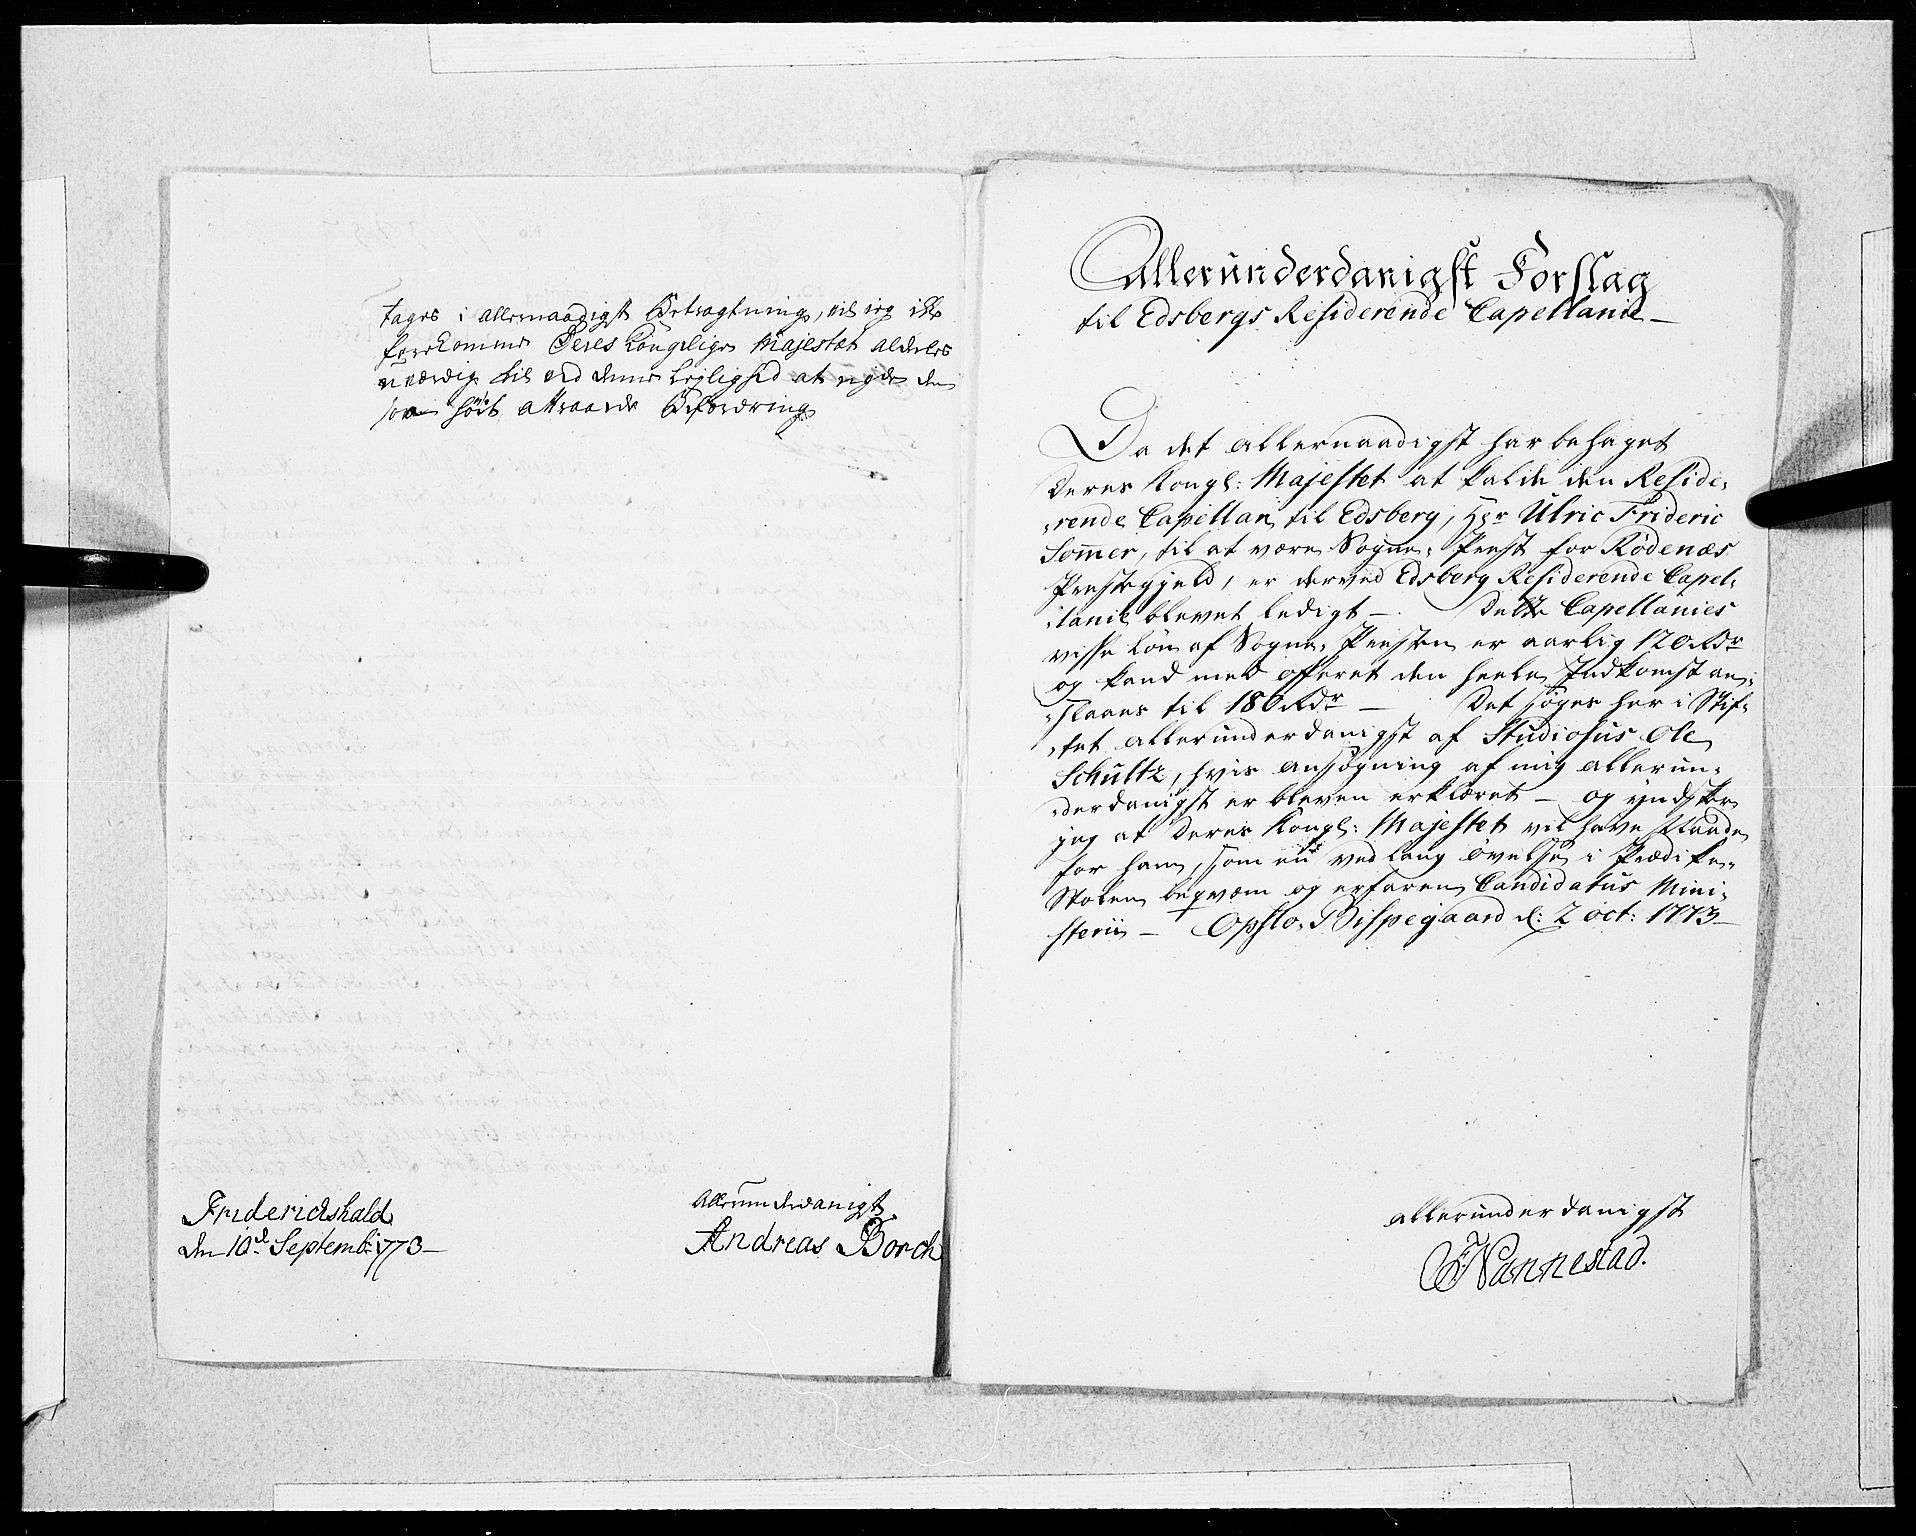 tages i allernaadigst Betragtning, vil jeg ikke
forekomme Deres Kongelige Majestæt aldeles
uværdig til ved denne Lejlighed at nyde den
saa höit attraaede Befordring
Friderichshald
den 10d. Septembr. 1773
Allerunderdanigst
Andreas Borch
Allerunderdanigst Forslag
til Edsbergs Residerende Capellanie
Da det allernaadigst har behaget
Deres Kongl: Majestet at kalde den Reside-
-rende Capellan til Edsberg, Hr Ulric Frideric
Sommer, til at være Sogne-Præst for Rödenæs
Præstegjeld, er derved Edsberg Residerende Capel-
-lanie blevet ledigt – Dette Capellanies
visse Lön af Sogne-Præsten er aarlig 120 Rdr
og kand med offeret den heele Indkomst an-
-slaaes til 180 Rdr – Det söges her i Stif-
-tet allerunderdanigst af Studiosus Ole
Schultz, hvis ansögning af mig allerun-
-derdanigst er bleven erklæret – og ynsker
jeg at Deres Kongl: Majestet vil have Naade
for ham, som en ved lang övelse i Prædike-
Stolen beqvæm og erfaren Candidatus Mini-
sterii – Opslo-Bispegaard d: 2 oct: 1773
allerunderdanigst
FNannestad.